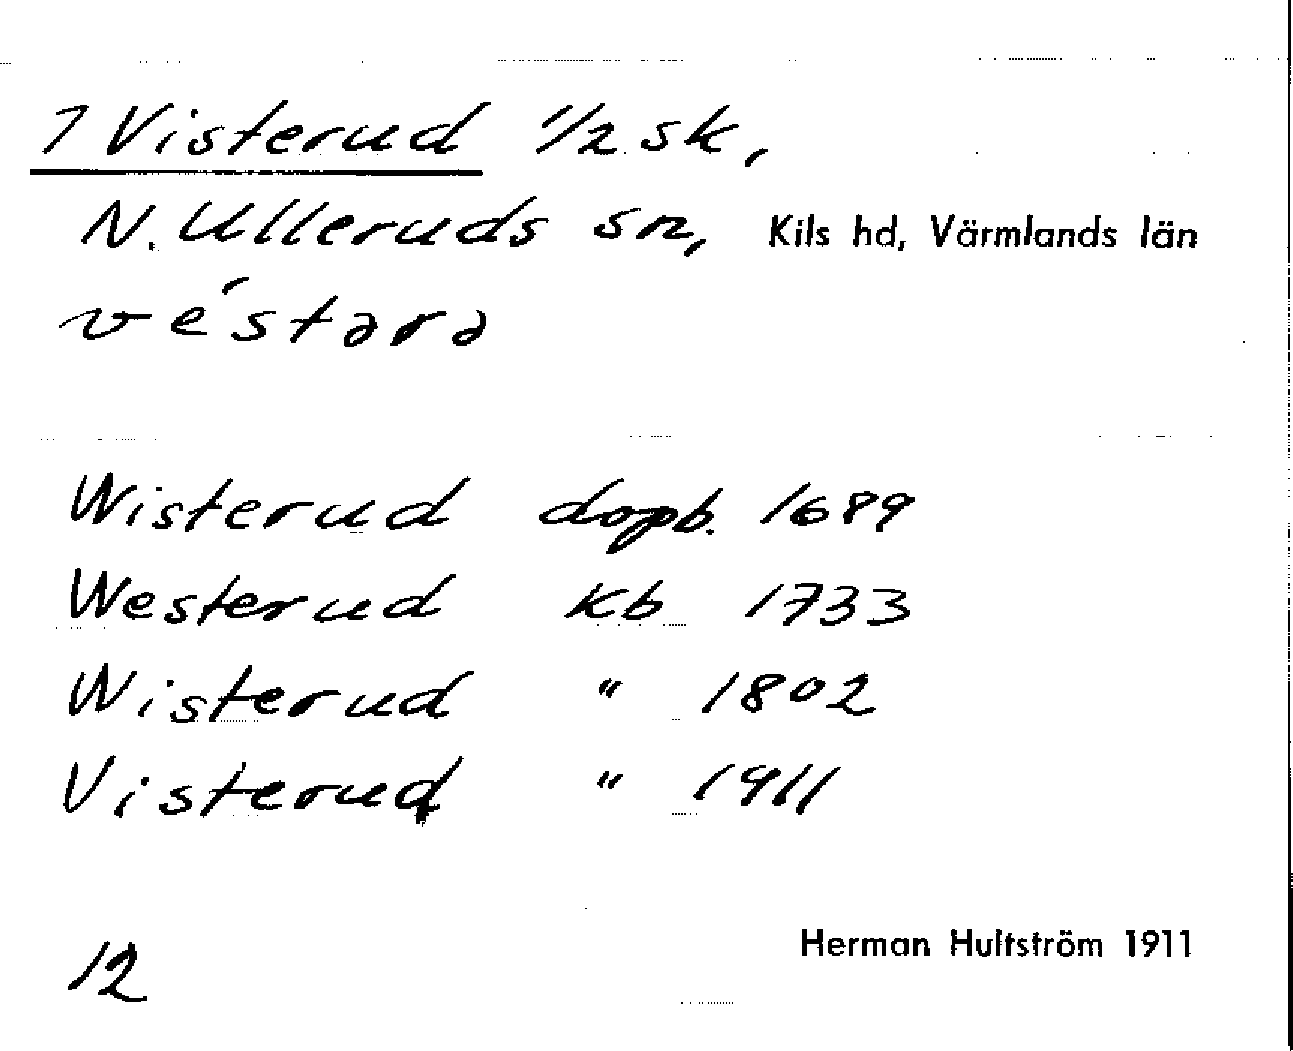 1 Visterud 1/2 sk,
N. Ulleruds sn, Kils hd, Värmlands län
vés̀tərə
Wisterud dopb. 1689
Westerud kb 1733
Wisterud " 1802
Visterud " 1911
12
Herman Hultström 1911